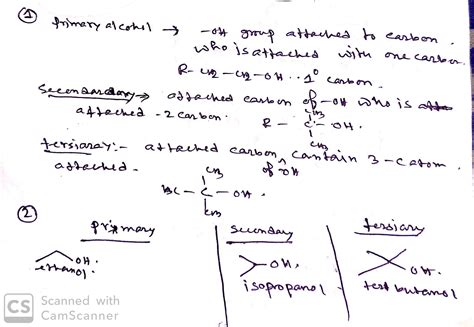 ① Primary alcohol → -OH group attached to carbon
who is attached with one carbon.
R- CH2 - CH2 - OH .. 1° carbon.
→ attached carbon of -OH who is
attached - 2 carbon.
CH3
R - C - OH.
CH3
tersiary :- attached carbon of -OH contain 3-C atom
attached.
CH3
H3C - C - OH.
CH3
②
primary
secondary
tersiary
OH.
ethanol.
OH.
isopropanol
OH.
test butanol
CS Scanned with
CamScanner